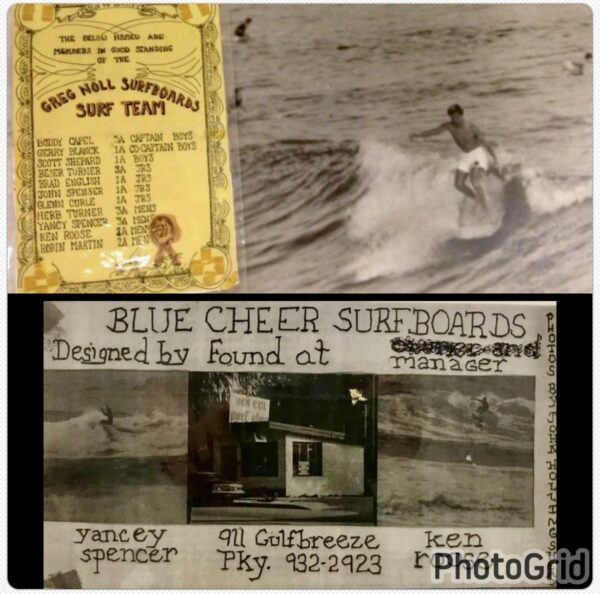 THE BELOW NAMED ARE
MEMBERS IN GOOD STANDING
OF THE
GREG NOLL SURFBOARDS
SURF TEAM
BUDDY CAPEL 3A CAPTAIN BOYS
GERRY BLANCK 1A CO-CAPTAIN BOYS
SCOTT SHEPARD 1A BOYS
BESER TURNER 3A JRS
BRAD ENGLISH 1A JRS
JOHN SPENSER 1A JRS
GLENN CURLE 1A JRS
HERB TURNER 3A MENS
YANCY SPENCER 3A MEN
KEN ROOSE 2A MENS
ROBIN MARTIN 2A MEN
BLUE CHEER SURFBOARDS
Designed by Found at
manager
yancey
spencer
911 Gulfbreeze
Pky. 932-2923
ken
roose
PHOTOS BY
PhotoGrid